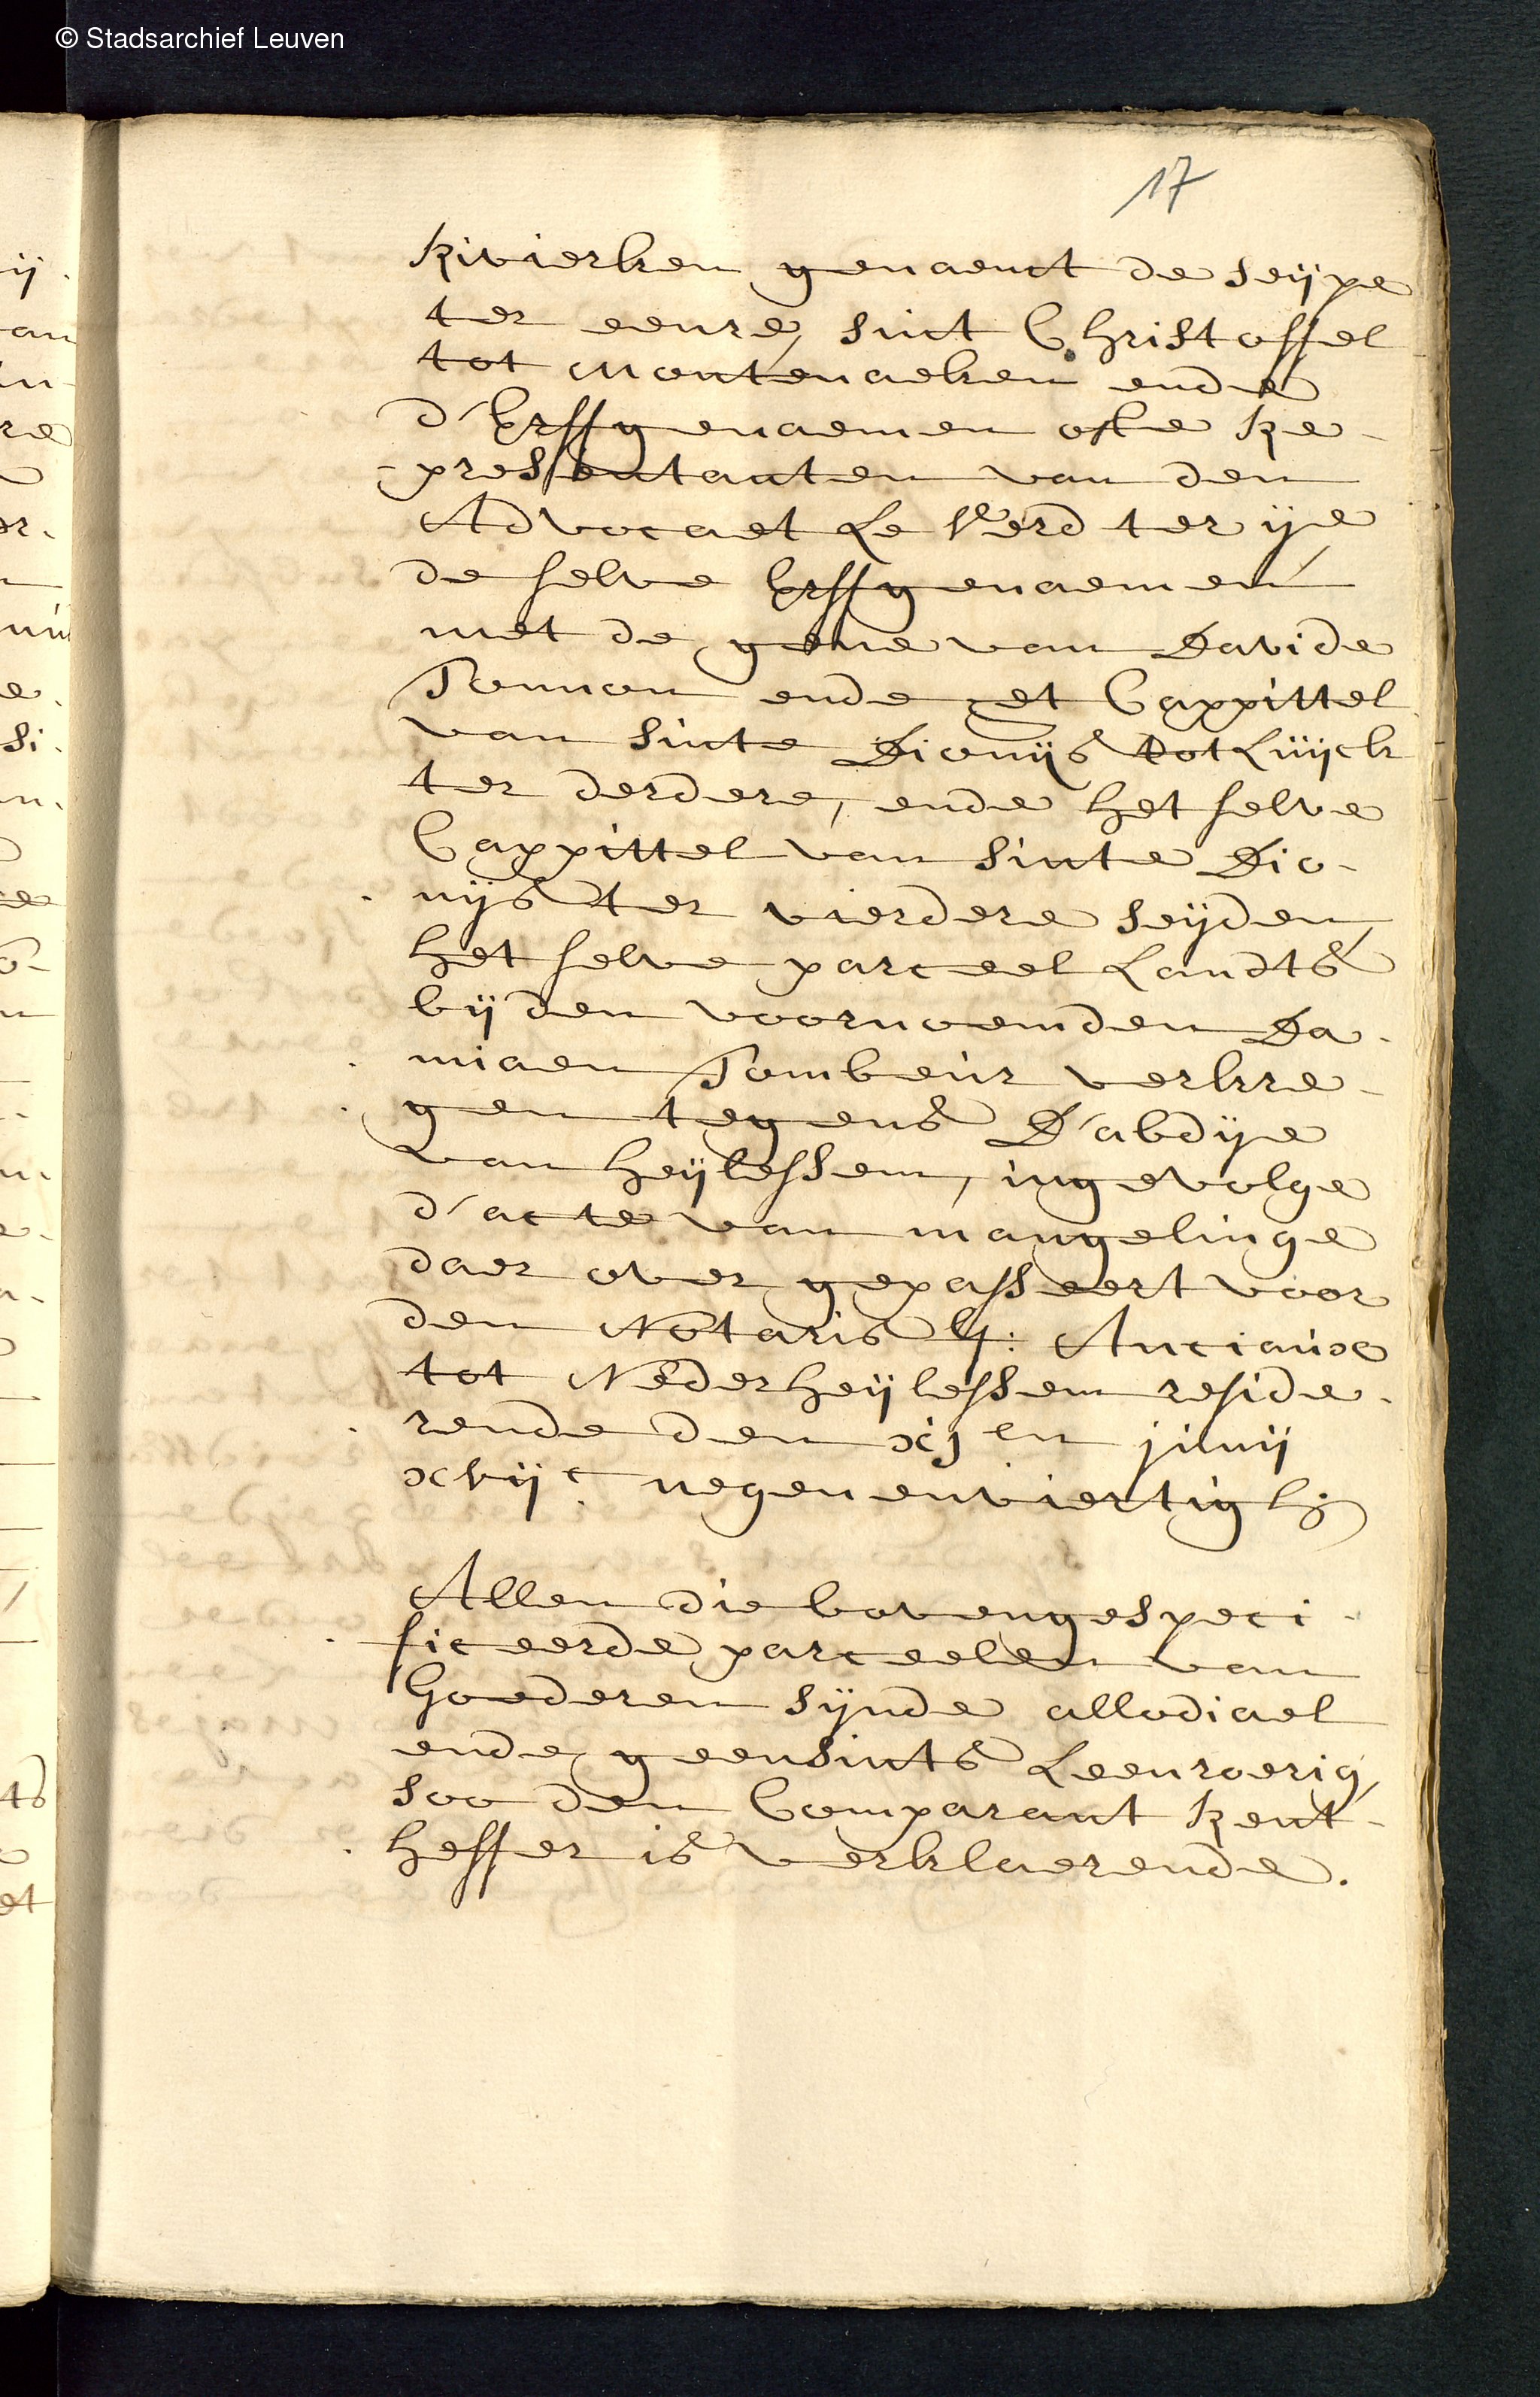 © Stadsarchief Leuven
17
Rivierken genaemt de seijpe
ter eenre, sint Christoffel
tot Montenaeken ende
d'Erffgenaemen ofte Re-
-pressentanten van den
Advocaet Le Verd ter ije
de selve Erffgenaemen
met de gene van Davide
Tonnon ende et Cappittel
van sinte Dionijs tot Luijck
ter derdere, ende het selve
Cappittel van sinte Dio-
nijs ter vierdere seijden,
het selve parceel Landts
bij den voornoemden Da-
miaen Tombeur verkre-
gen tegens D'abdije
van heijlessem, ingevolge
d'acte van mangelinge
daer over gepasseert voor
den Notaris G: Anciaux
tot Nederheijlessem reside-
rende den xij en junij
xvij c negenenviertigh
Allen die bovengespeci-
ficeerde parceelen van
Goederen sijnde allodiael
ende geensints Leenroerig,
soo den Comparant Rent-
heffer is verklaerende.